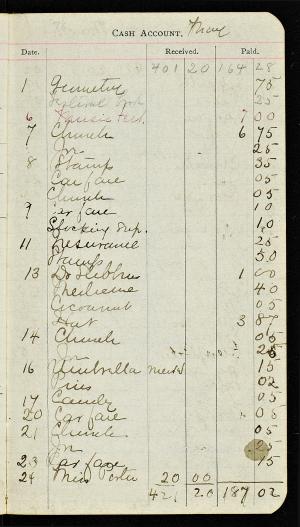 CASH ACCOUNT. May
Date. Received. Paid.
401 20 164 28
1 Geometry 75
25
6 7 00
7 Church 6 75
Jn 25
8 Stamp 35
Car fare 05
Church 05
9 Car fare 10
Stocking Sup. 10
11 Insurance 25
Stamps 50
13 Dr 1 00
Medicine 40
Cocoanut 05
Hat 3 87
14 Church 05
Jn 25
16 Umbrella mend 15
Pins 02
17 Candy 05
20 Car fare 05
21 Church 05
Jn 25
23 Car fare 15
24 Miss 20 00
421 20 187 02